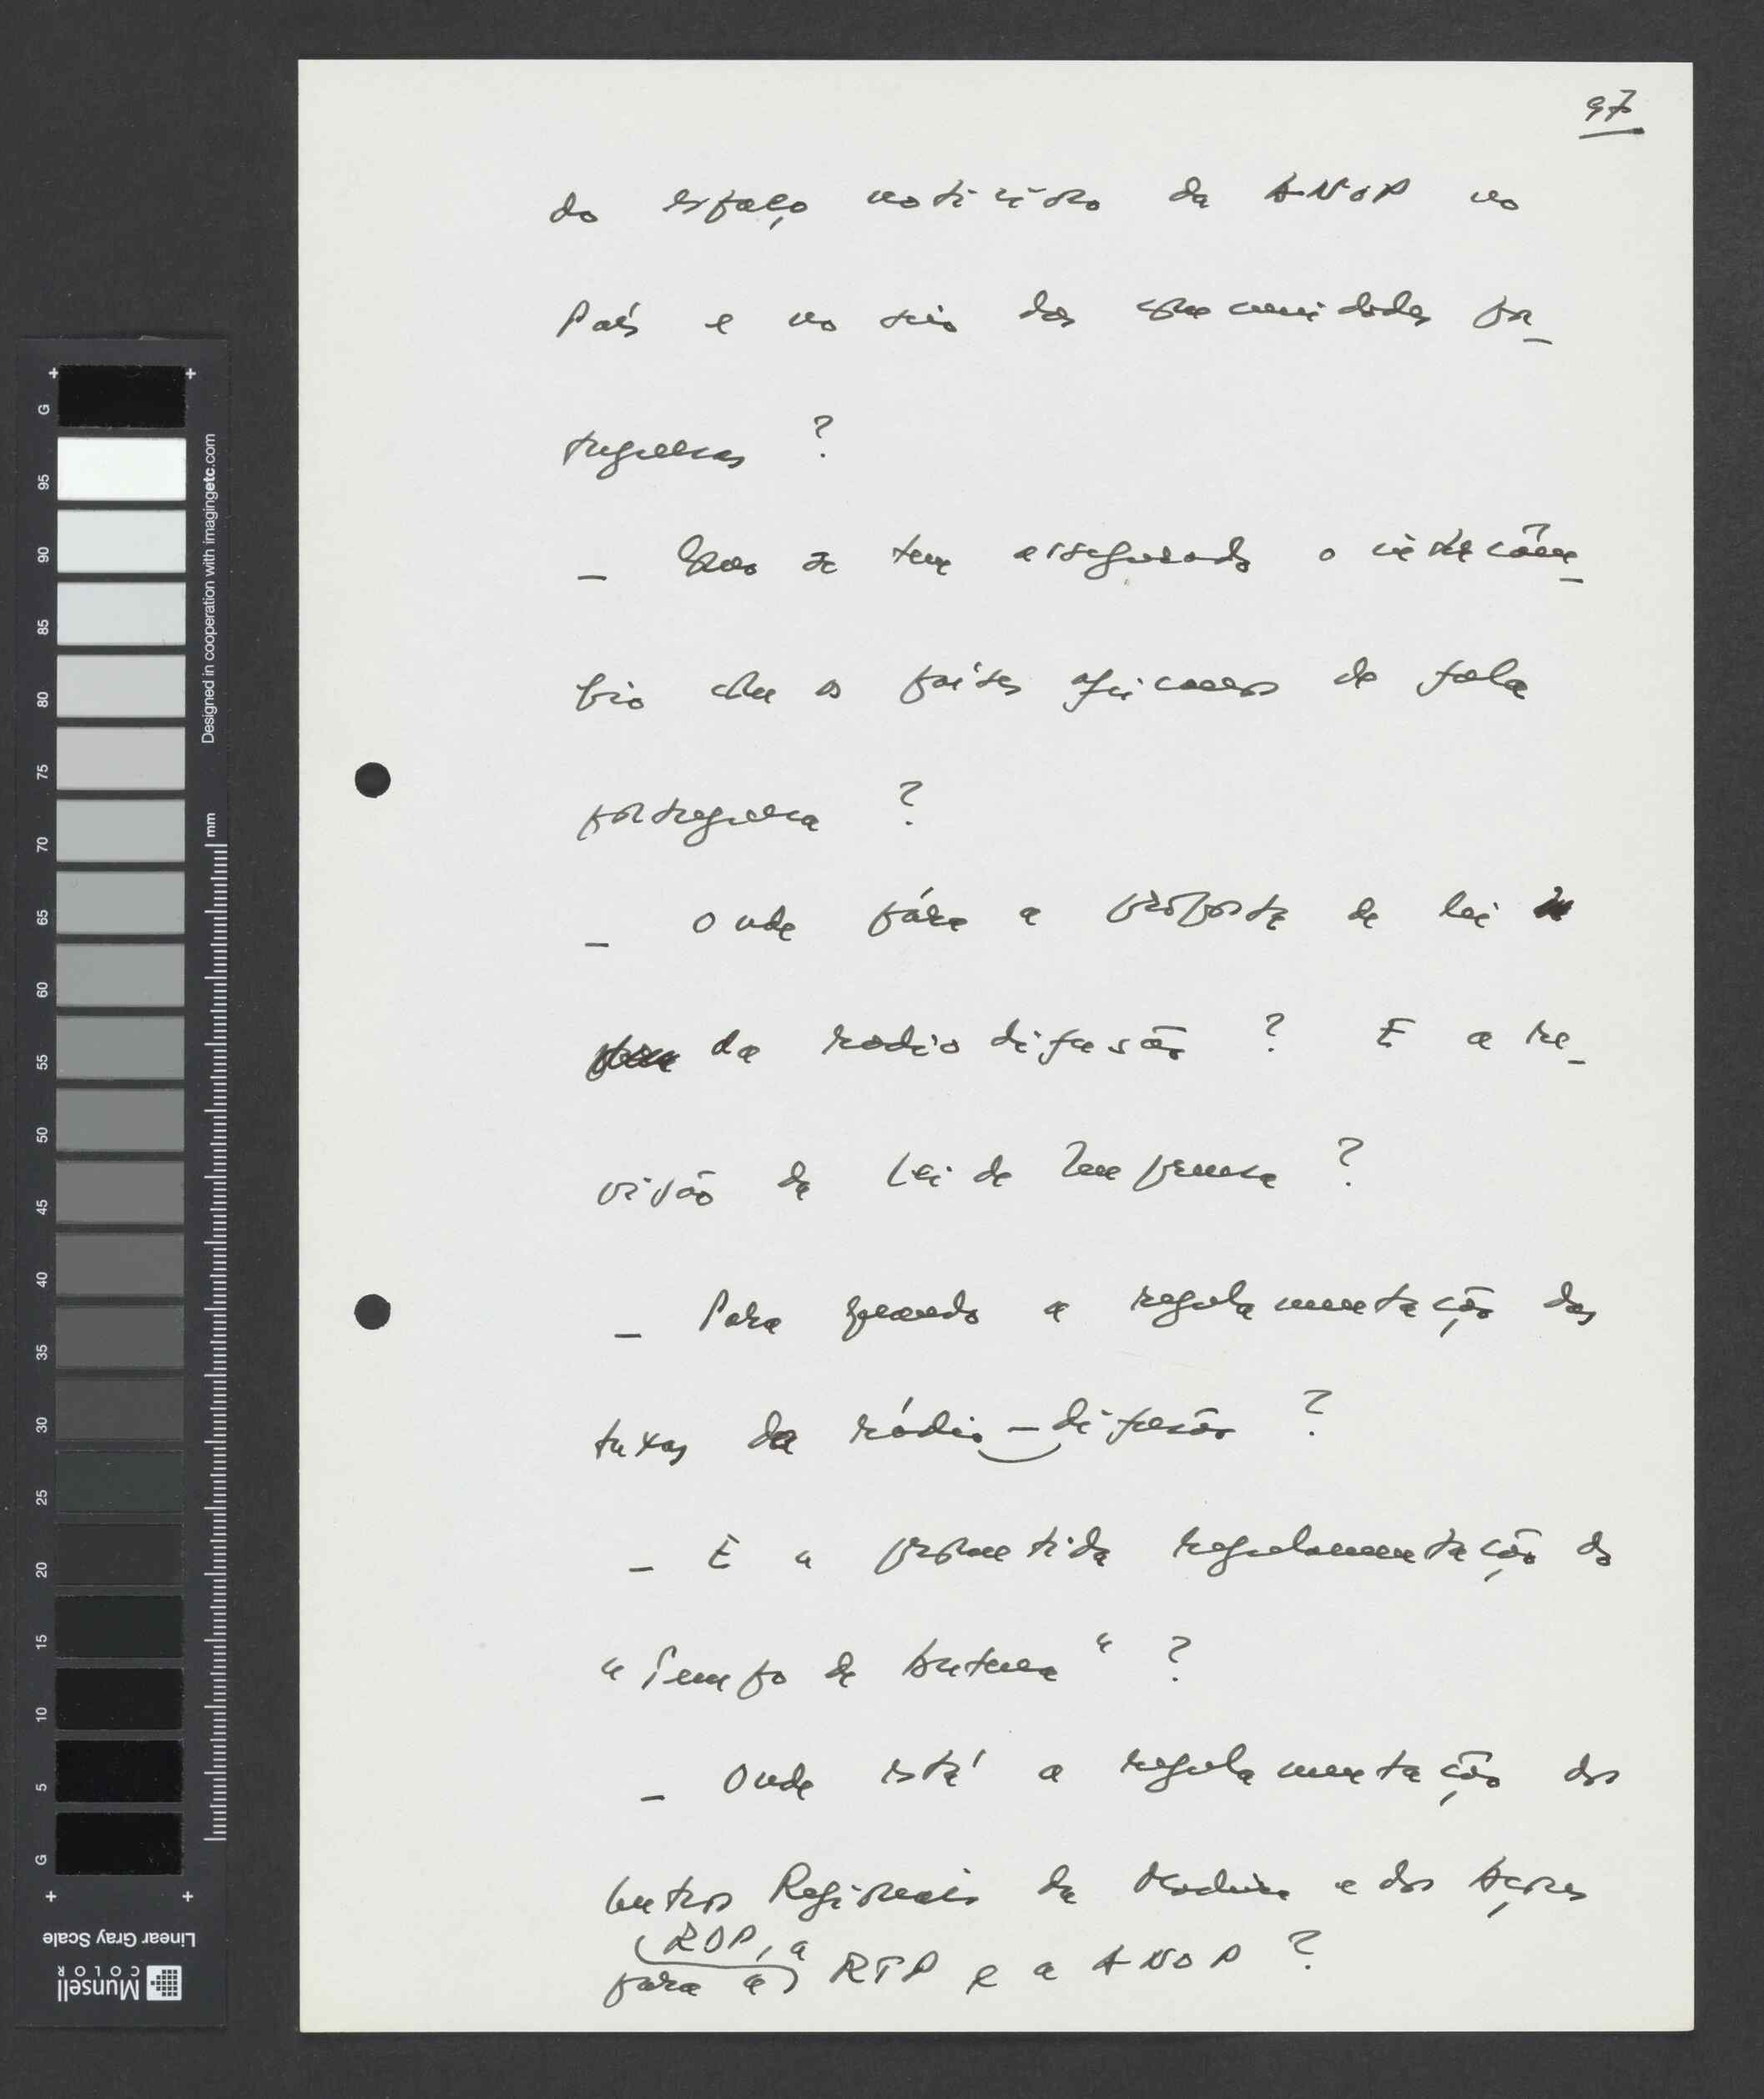 97
do espaço noticioso da ANOP no
País e no seio das comunidades por_
tuguesas ?
_ Como se tem assegurado o intercâm_
bio com os países africanos de fala
portuguesa ?
_ Onde pára a proposta de lei
da radiodifusão ? E a re_
visão da Lei de Imprensa ?
_ Para quando a regulamentação das
taxas da rádio-difusão ?
_ E a prometida regulamentação do
"Tempo de Antena" ?
_ Onde está a regulamentação dos
Centros Regionais da Madeira e dos Açores
RDP, a
para a RTP e a ANOP ?
+ +
G
95
90
85
80
75
70
65
60
55
50
45
40
35
30
25
20
15
10
5
G
+ +
Designed in cooperation with imagingetc.com
mm
Linear Gray Scale
Munsell
COLOR